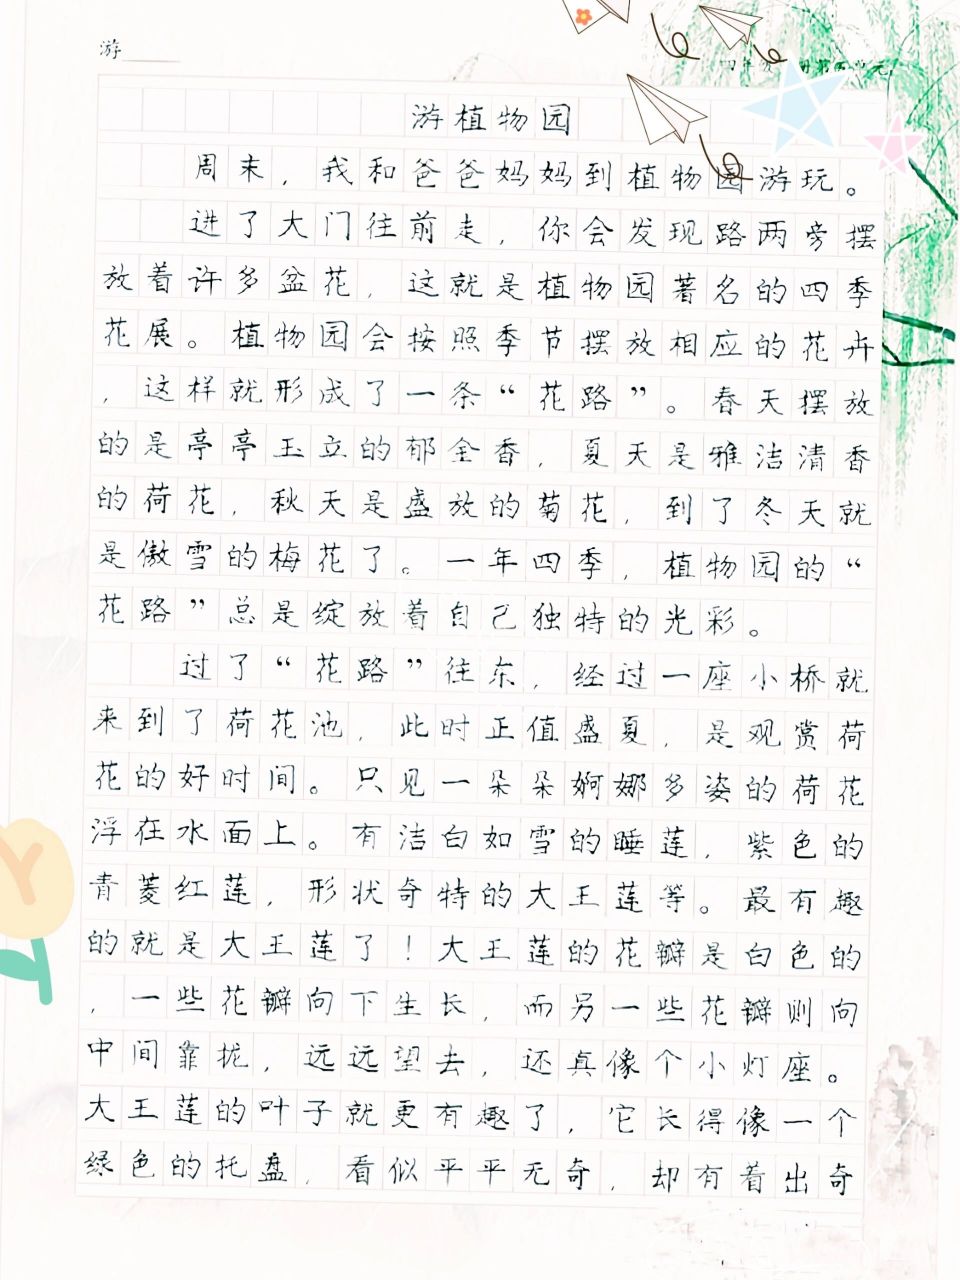 游
四年级 册第五单元
游植物园
周末，我和爸爸妈妈到植物园游玩。
进了大门往前走，你会发现路两旁摆
放着许多盆花，这就是植物园著名的四季
花展。植物园会按照季节摆放相应的花卉
，这样就形成了一条“花路”。春天摆放
的是亭亭玉立的郁金香，夏天是雅洁清香
的荷花，秋天是盛放的菊花，到了冬天就
是傲雪的梅花了。一年四季，植物园的“
花路”总是绽放着自己独特的光彩。
过了“花路”往东，经过一座小桥就
来到了荷花池，此时正值盛夏，是观赏荷
花的好时间。只见一朵朵婀娜多姿的荷花
浮在水面上。有洁白如雪的睡莲，紫色的
青菱红莲，形状奇特的大王莲等。最有趣
的就是大王莲了！大王莲的花瓣是白色的
，一些花瓣向下生长，而另一些花瓣则向
中间靠拢，远远望去，还真像个小灯座。
大王莲的叶子就更有趣了，它长得像一个
绿色的托盘，看似平平无奇，却有着出奇